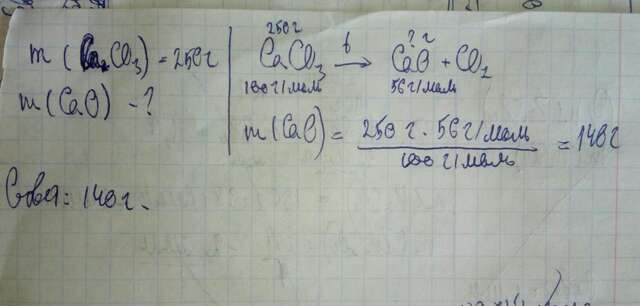 m(CaCO₃) = 250г
m(CaO) - ?
250г ? г
CaCO₃ t→ CaO + CO₂
100г/моль 56г/моль
m(CaO) = 250 г · 56 г/моль / 100 г/моль = 140г
Ответ: 140г.